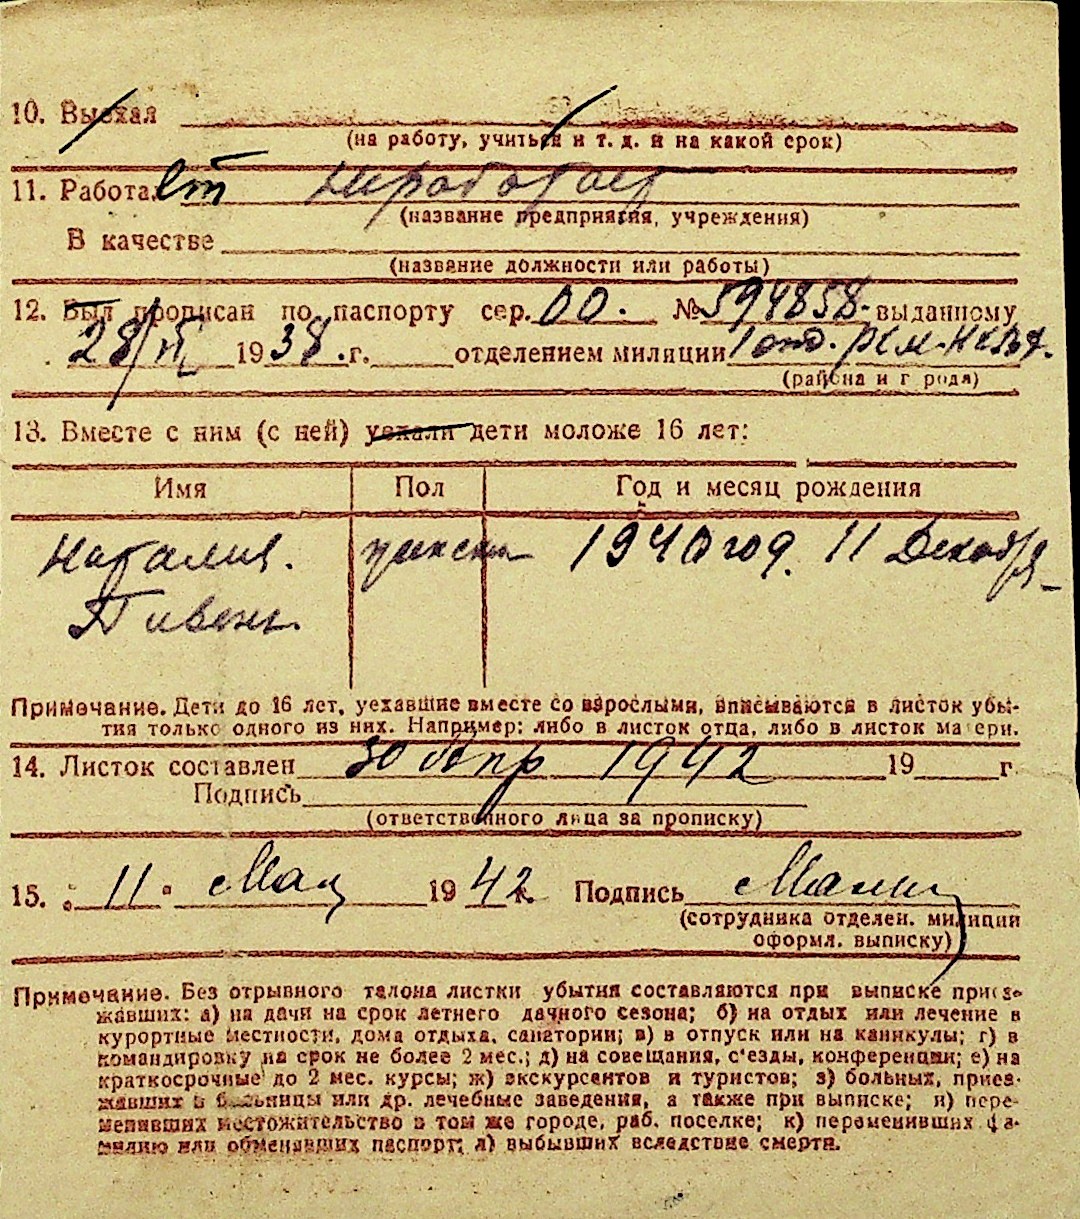 10. Выехал
(на работу, учиться и т. д. и на какой срок)
11. Работает неработает
(название предприятия, учреждения)
В качестве
(название должности или работы)
12. Был прописан по паспорту сер. ОО. № 594858. выданному
28/ 1938. г. отделением милиции 1 отд. РКМ.
(района и города)
13. Вместе с ним (с ней) уехали дети моложе 16 лет:
Имя Пол Год и месяц рождения
Наталия. женски 1940 год. 11 Декабря
Пивень.
Примечание. Дети до 16 лет, уехавшие вместе со взрослыми, вписываются в листок убы-
тия только одного из них. Например: либо в листок отца, либо в листок матери.
14. Листок составлен 30 Апр 1942 19 г.
Подпись
(ответственного лица за прописку)
15. „ 11 " Мая 1942 г. Подпись
(сотрудника отделен. милиции
оформл. выписку)
Примечание. Без отрывного талона листки убытия составляются при выписке приез-
жавших: а) на дачи на срок летнего дачного сезона; б) на отдых или лечение в
курортные местности, дома отдыха, санатории; в) в отпуск или на каникулы; г) в
командировку на срок не более 2 мес.; д) на совещания, с'езды, конференции; е) на
краткосрочные до 2 мес. курсы; ж) экскурсантов и туристов; з) больных, приез-
жавших в больницы или др. лечебные заведения, а также при выписке; и) пере-
менивших местожительство в том же городе, раб. поселке; к) переменивших фа-
милию или обменявших паспорт; л) выбывших вследствие смерти.